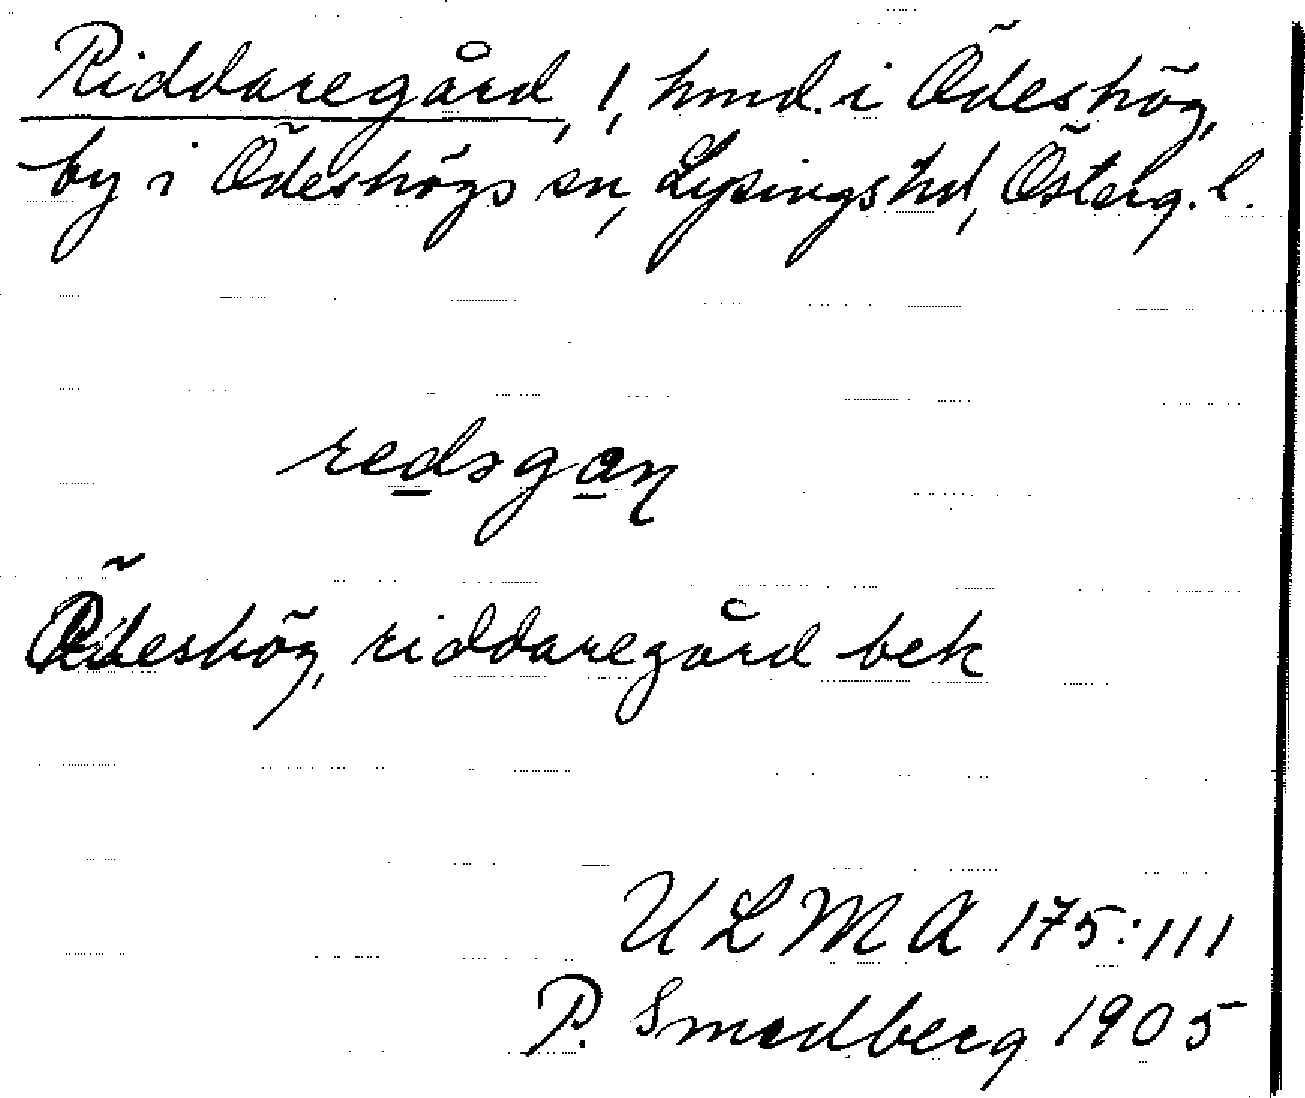 Riddaregård, 1, hmd. i Ödeshög,
by i Ödeshögs sn, Lysings hd, Österg. l.
redsgaɳ
Ödeshög, riddaregård bek
ULMA 175:111
P. Smedberg 1905